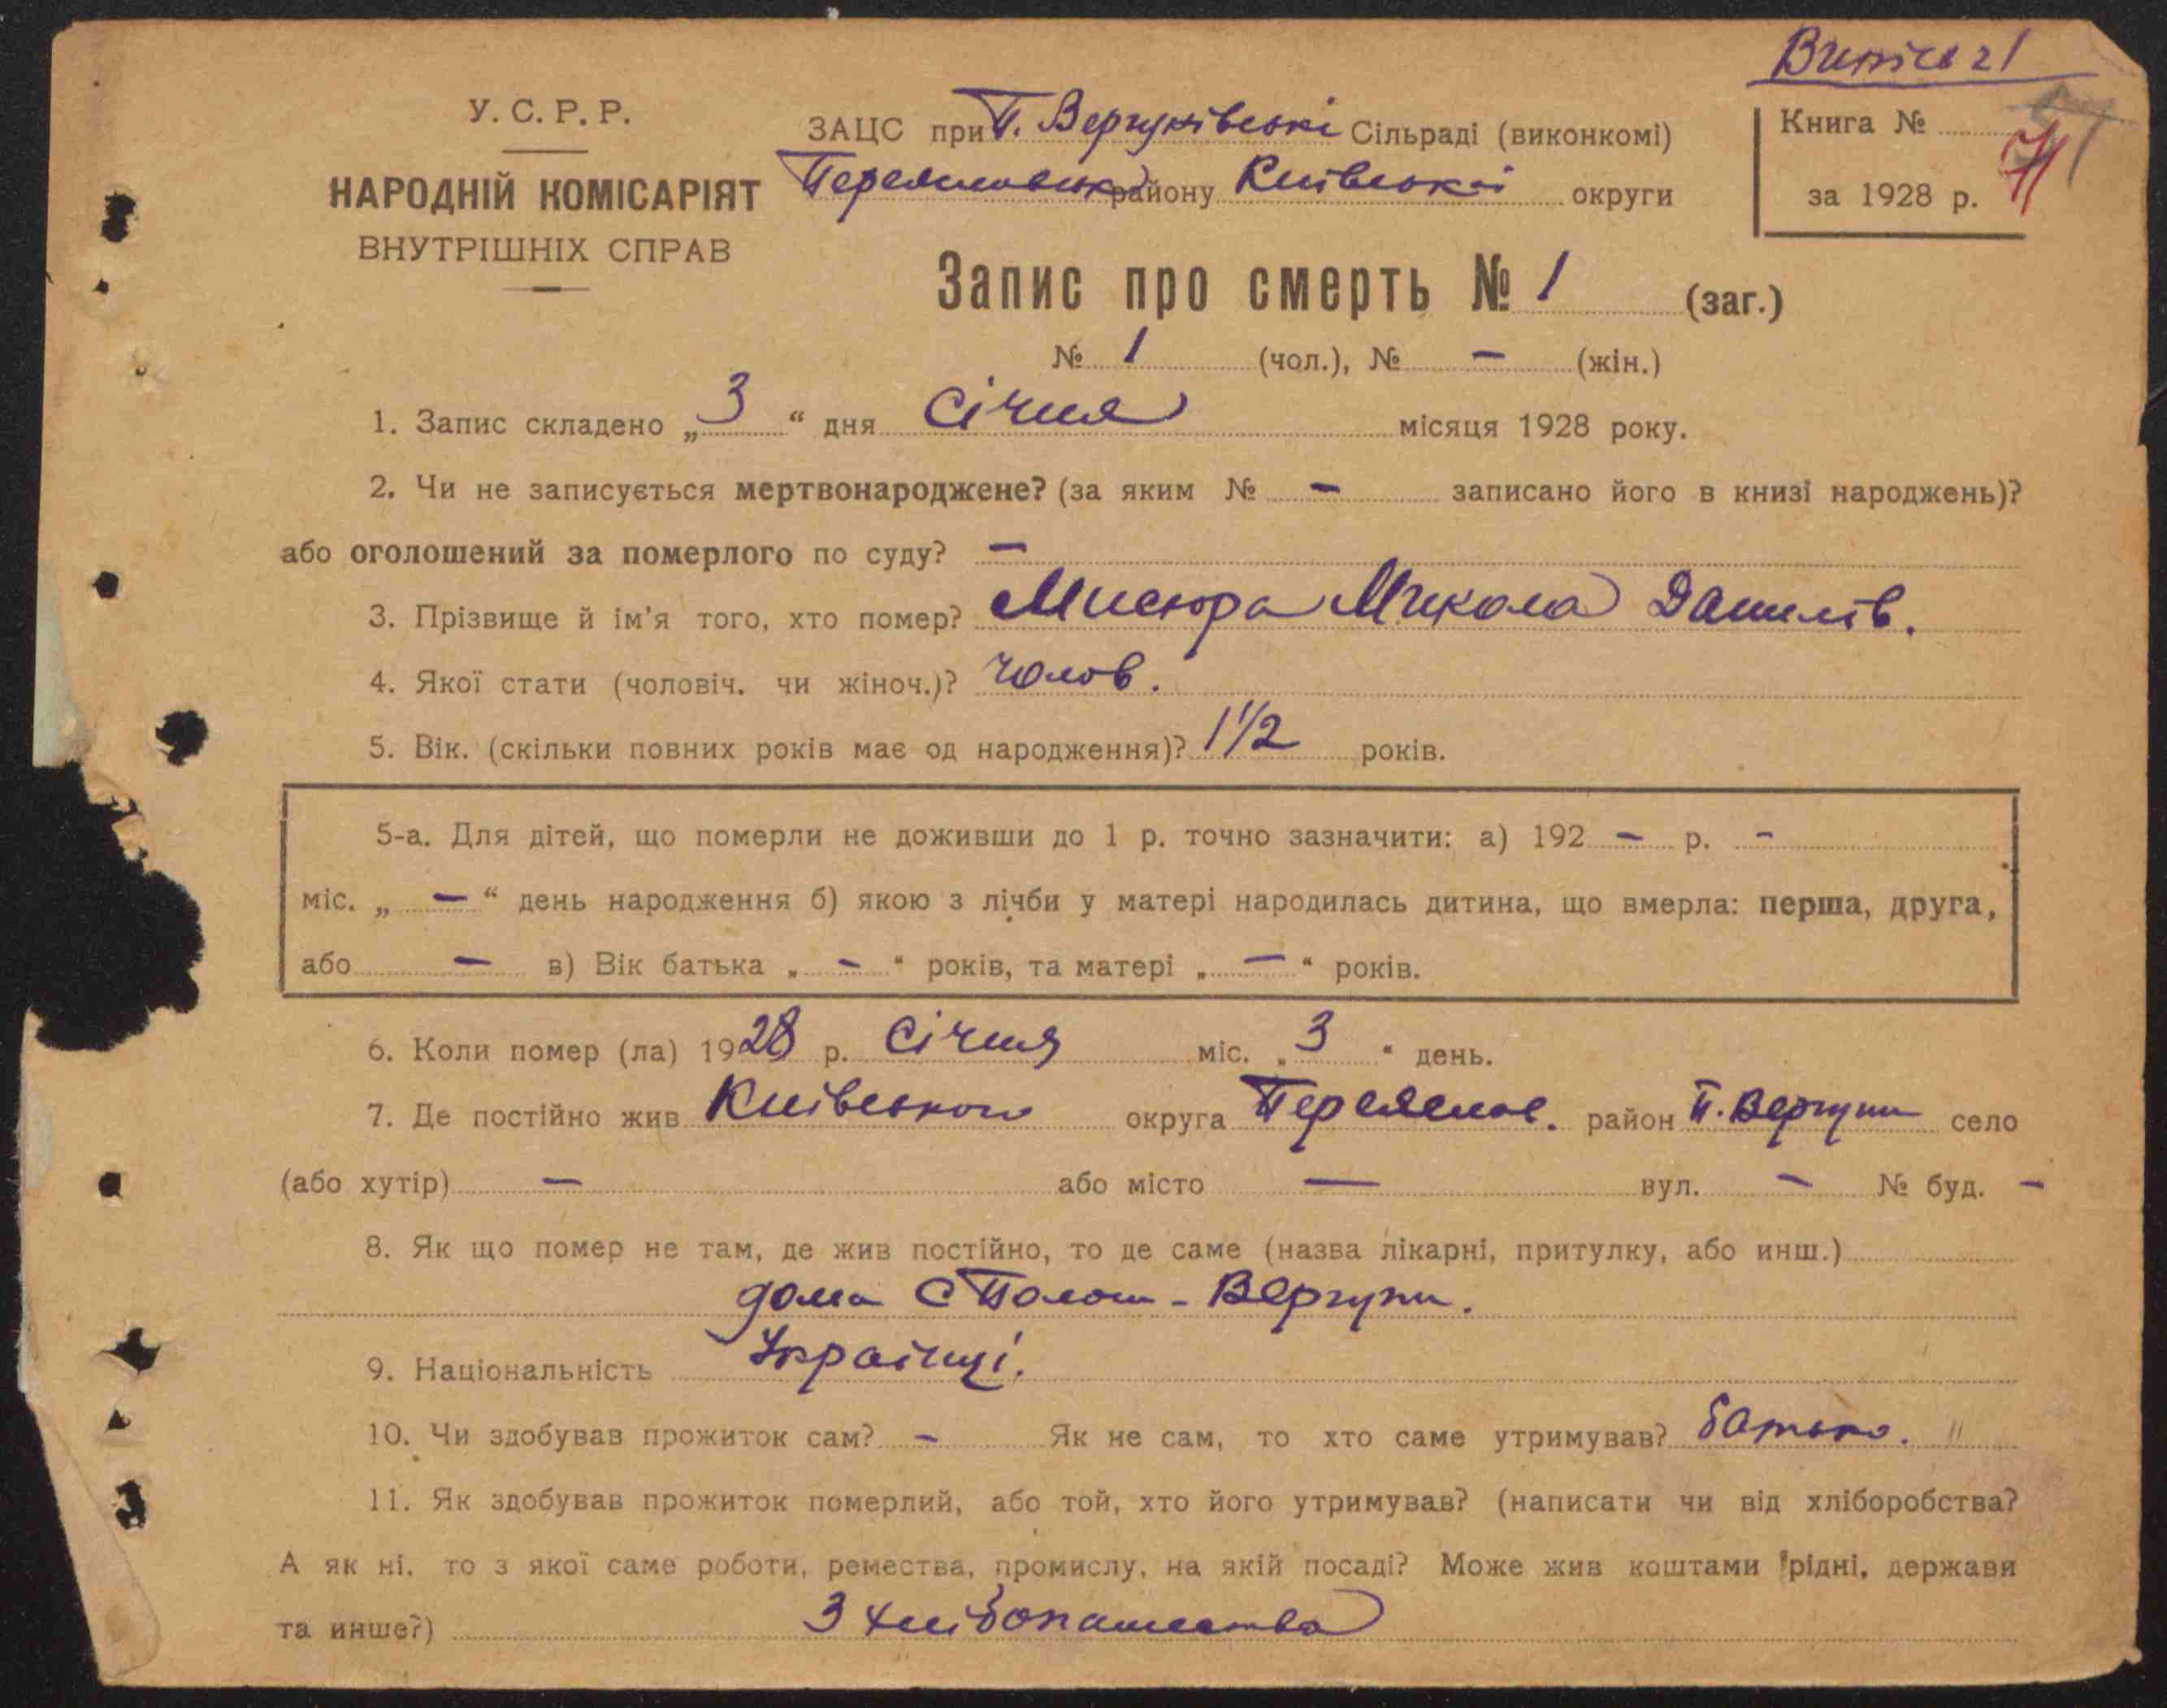 У.С.Р.Р.
НАРОДНІЙ КОМІСАРІЯТ
ВНУТРІШНІХ СПРАВ
ЗАЦС при П. Вергунівські Сільраді (виконкомі)
району Київської округи
Книга №
за 1928 р.
Запис про смерть № 1 (заг.)
№ 1 (чол.), № – (жін.)
1. Запис складено „ 3 “ дня Січня місяця 1928 року.
2. Чи не записується мертвонароджене? (за яким № – записано його в книзі народжень)?
або оголошений за померлого по суду? –
3. Прізвище й ім'я того, хто помер? Мисюра Микола Данилів.
4. Якої стати (чоловіч. чи жіноч.)? чолов.
5. Вік. (скільки повних років має од народження)? 1 1/2 років.
5-а. Для дітей, що померли не доживши до 1 р. точно зазначити: а) 192 – р. –
міс. „ – “ день народження б) якою з лічби у матері народилась дитина, що вмерла: перша, друга,
або – в) Вік батька „ – “ років, та матері „ – “ років.
6. Коли помер (ла) 1928 р. Січня міс. „ 3 “ день.
7. Де постійно жив Київського округа Переяслов. район П. Вергуни село
(або хутір) – або місто – вул. – № буд. –
8. Як що помер не там, де жив постійно, то де саме (назва лікарні, притулку, або инш.)
дома С Полош-Вергуни.
9. Національність Українці.
10. Чи здобував прожиток сам? – Як не сам, то хто саме утримував? батько. "
11. Як здобував прожиток померлий, або той, хто його утримував? (написати чи від хліборобства?
А як ні, то з якої саме роботи, ремества, промислу, на якій посаді? Може жив коштами рідні, держави
та инше?) З хлібопашества